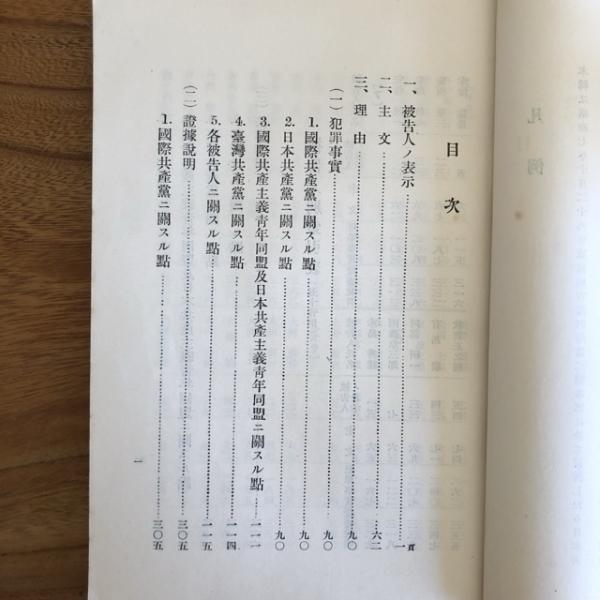 目次
一、被告人ノ表示……一頁
二、主文……六二
三、理由……九〇
(一)犯罪事實……九〇
1.國際共產黨ニ關スル點……九〇
2.日本共產黨ニ關スル點……九〇
3.國際共產主義靑年同盟及日本共產主義靑年同盟ニ關スル點……一一一
4.臺灣共產黨ニ關スル點……一一四
5.各被告人ニ關スル點……一一五
(二)證據說明……三〇五
1.國際共產黨ニ關スル點……三〇五
一
凡例